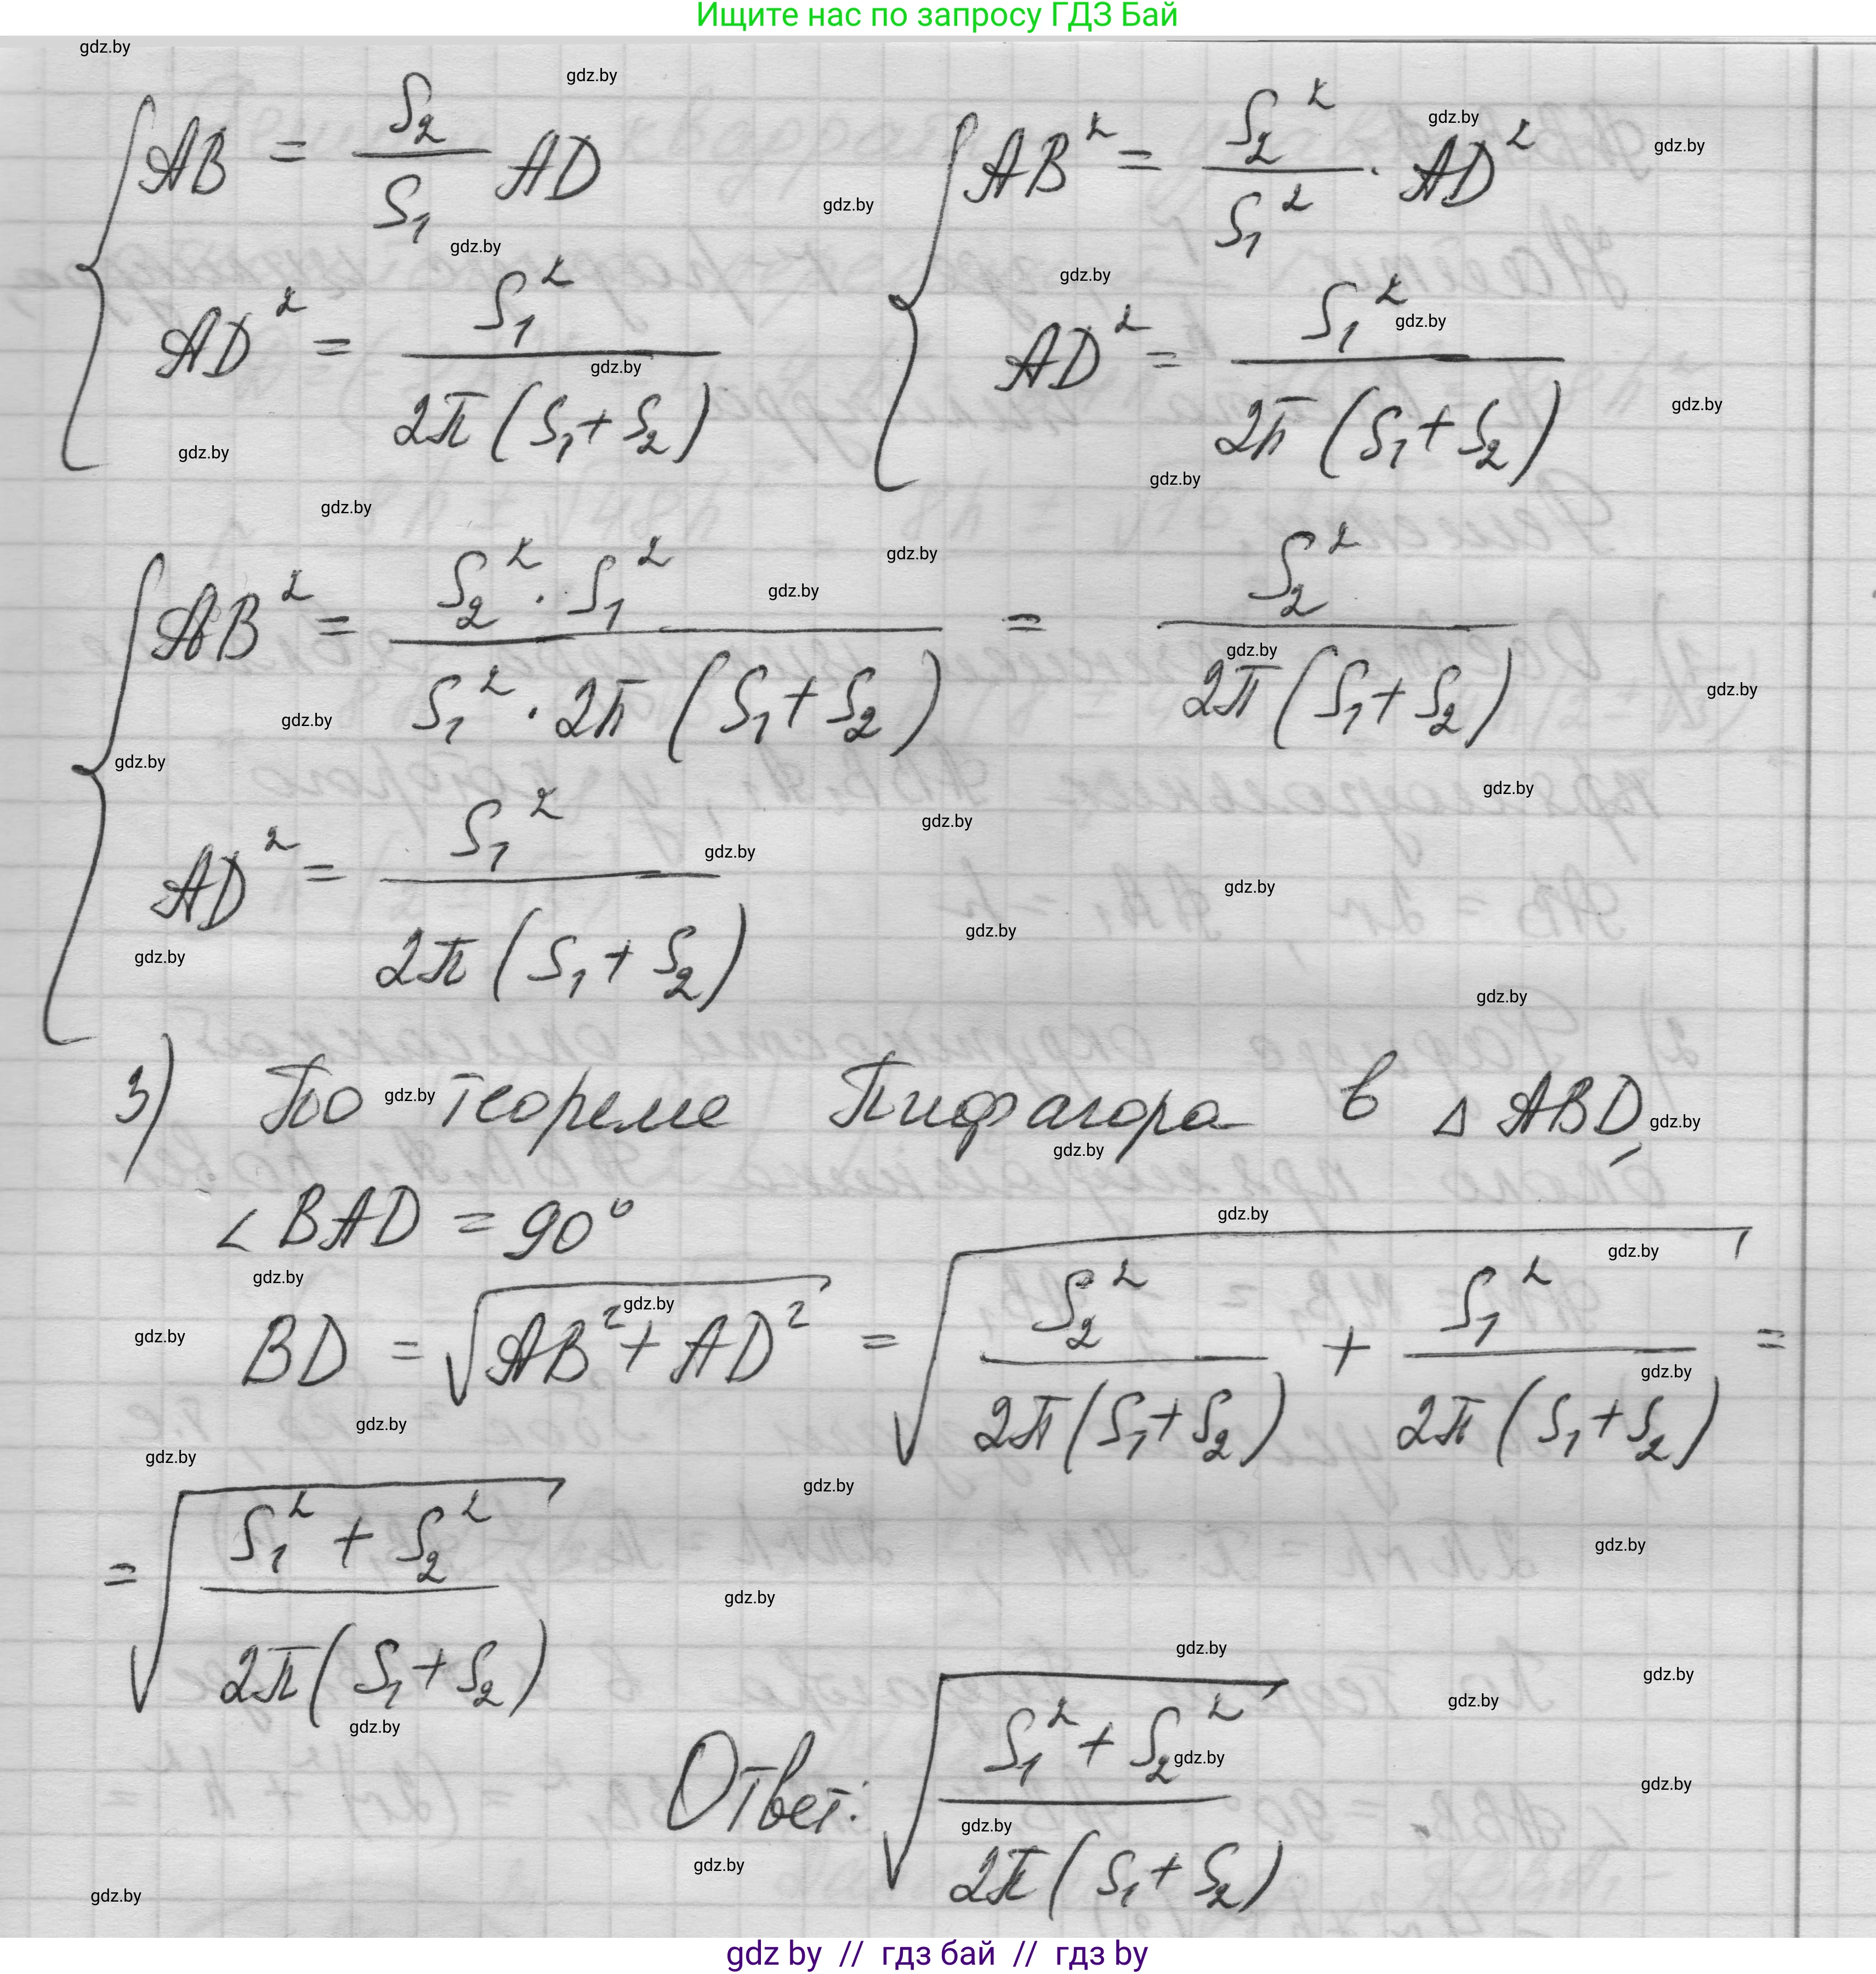 Ищите нас по запросу ГДЗ Бай
AB = S₂/S₁ AD
AD² = S₁²/(2π(S₁+S₂))
AB² = S₂²/S₁² · AD²
AD² = S₁²/(2π(S₁+S₂))
AB² = S₂² · S₁²/(S₁² · 2π(S₁+S₂)) = S₂²/(2π(S₁+S₂))
AD² = S₁²/(2π(S₁+S₂))
3) По теореме Пифагора в △ABD,
∠BAD = 90°
BD = √(AB² + AD²) = √(S₂²/(2π(S₁+S₂)) + S₁²/(2π(S₁+S₂))) =
= √((S₁² + S₂²)/(2π(S₁+S₂)))
Ответ: √((S₁² + S₂²)/(2π(S₁+S₂)))
gdz.by
gdz by // гдз бай // гдз by